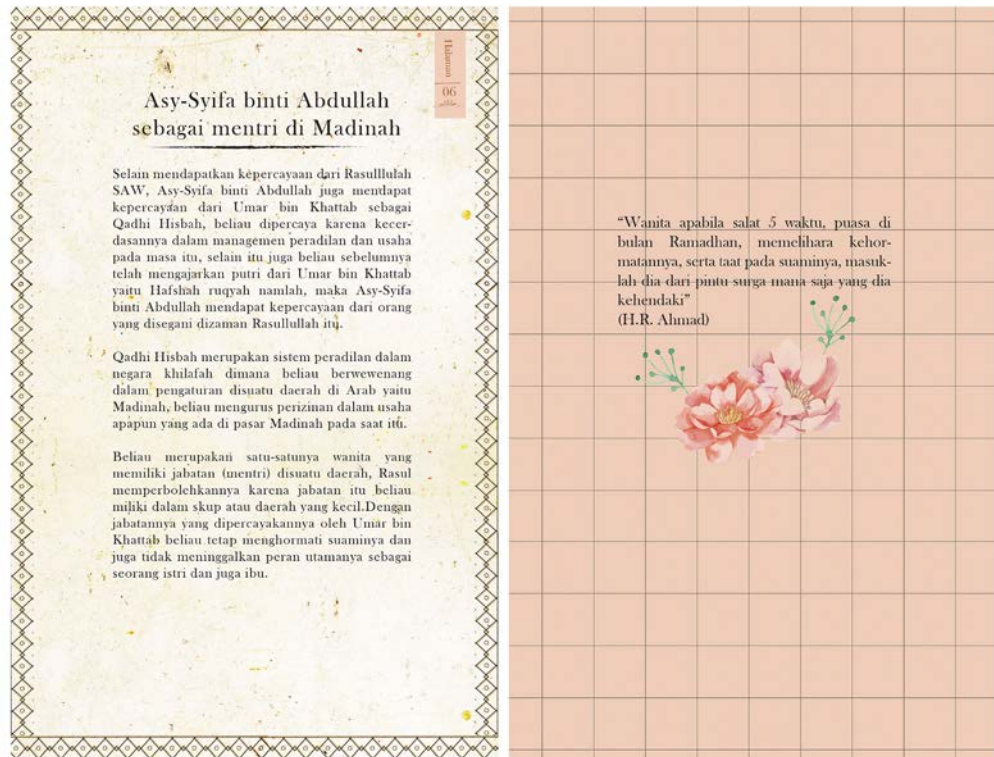 Halaman
06
Asy-Syifa binti Abdullah
sebagai mentri di Madinah
Selain mendapatkan kepercayaan dari Rasulllulah
SAW, Asy-Syifa binti Abdullah juga mendapat
kepercayaan dari Umar bin Khattab sebagai
Qadhi Hisbah, beliau dipercaya karena kecer-
dasannya dalam managemen peradilan dan usaha
pada masa itu, selain itu juga beliau sebelumnya
telah mengajarkan putri dari Umar bin Khattab
yaitu Hafshah ruqyah namlah, maka Asy-Syifa
binti Abdullah mendapat kepercayaan dari orang
yang disegani dizaman Rasullullah itu.
Qadhi Hisbah merupakan sistem peradilan dalam
negara khilafah dimana beliau berwewenang
dalam pengaturan disuatu daerah di Arab yaitu
Madinah, beliau mengurus perizinan dalam usaha
apapun yang ada di pasar Madinah pada saat itu.
Beliau merupakan satu-satunya wanita yang
memiliki jabatan (mentri) disuatu daerah, Rasul
memperbolehkannya karena jabatan itu beliau
miliki dalam skup atau daerah yang kecil.Dengan
jabatannya yang dipercayakannya oleh Umar bin
Khattab beliau tetap menghormati suaminya dan
juga tidak meninggalkan peran utamanya sebagai
seorang istri dan juga ibu.
“Wanita apabila salat 5 waktu, puasa di
bulan Ramadhan, memelihara kehor-
matannya, serta taat pada suaminya, masuk-
lah dia dari pintu surga mana saja yang dia
kehendaki”
(H.R. Ahmad)